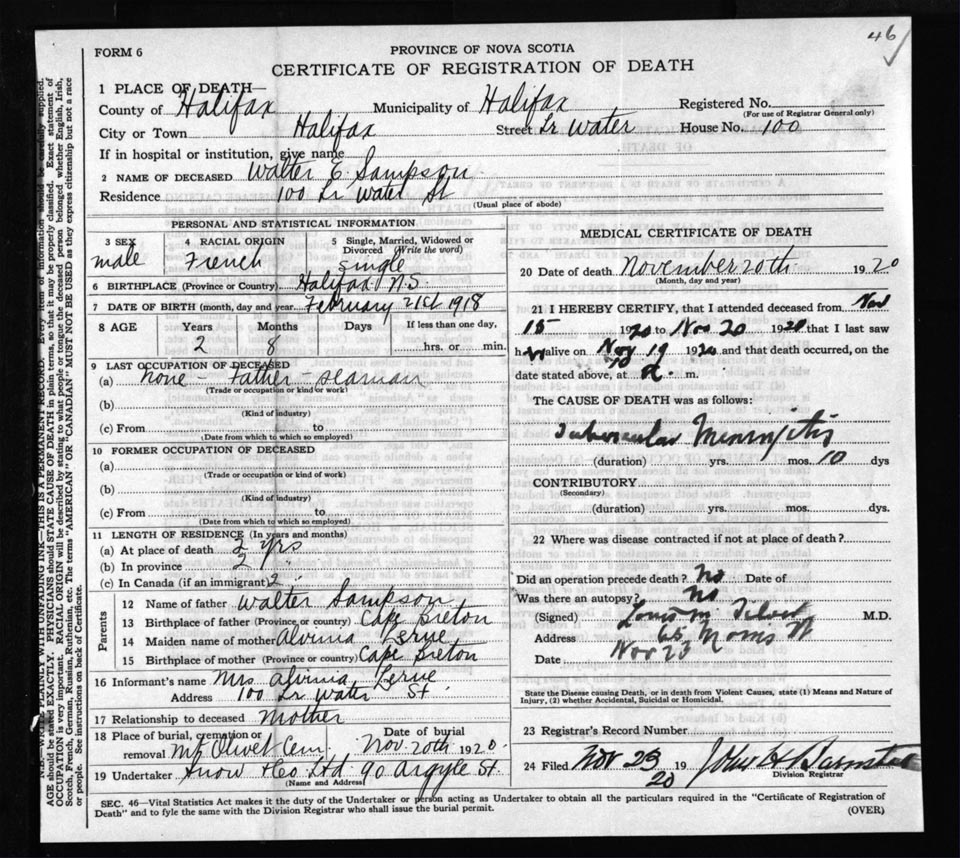 46
FORM 6
PROVINCE OF NOVA SCOTIA
CERTIFICATE OF REGISTRATION OF DEATH
1 PLACE OF DEATH—
County of Halifax Municipality of Halifax Registered No.
(For use of Registrar General only)
City or Town Halifax Street Lr Water House No. 100
If in hospital or institution, give name
2 NAME OF DECEASED Walter E. Sampson
Residence 100 Lr Water St
(Usual place of abode)
PERSONAL AND STATISTICAL INFORMATION
3 SEX male
4 RACIAL ORIGIN French
5 Single, Married, Widowed or Divorced (Write the word) Single
6 BIRTHPLACE (Province or Country) Halifax N.S.
7 DATE OF BIRTH (month, day and year) February 21st 1918
8 AGE Years Months Days If less than one day,
2 8 hrs. or min.
9 LAST OCCUPATION OF DECEASED
(a) none - Father - seaman
(Trade or occupation or kind of work)
(b)
(Kind of industry)
(c) From to
(Date from which to which so employed)
10 FORMER OCCUPATION OF DECEASED
(a)
(Trade or occupation or kind of work)
(b)
(Kind of industry)
(c) From to
(Date from which to which so employed)
11 LENGTH OF RESIDENCE (In years and months)
(a) At place of death 2 yrs
(b) In province 2 "
(c) In Canada (if an immigrant) 2
Parents
12 Name of father Walter Sampson
13 Birthplace of father (Province or country) Cape Breton
14 Maiden name of mother Alvina
15 Birthplace of mother (Province or country) Cape Breton
16 Informant's name Mrs Alvina
Address 100 Lr Water St.
17 Relationship to deceased Mother
18 Place of burial, cremation or removal Mt Olivet Cem. Date of burial Nov. 20th 1920.
19 Undertaker Snow & Co Ltd 90 Argyle St.
(Name and Address)
MEDICAL CERTIFICATE OF DEATH
20 Date of death November 20th 1920
(Month, day and year)
21 I HEREBY CERTIFY, that I attended deceased from Nov
15 1920 to Nov 20 1920 that I last saw
h alive on Nov 19 1920 and that death occurred, on the
date stated above, at m.
The CAUSE OF DEATH was as follows:
Tubercular Meningitis
(duration) yrs. mos. 10 dys
CONTRIBUTORY
(Secondary)
(duration) yrs. mos. dys.
22 Where was disease contracted if not at place of death?
Did an operation precede death? No Date of
Was there an autopsy? No
(Signed) Louis M. M.D.
Address 65 Morris St
Date Nov 23
State the Disease causing Death, or in death from Violent Causes, state (1) Means and Nature of
Injury, (2) whether Accidental, Suicidal or Homicidal.
23 Registrar's Record Number
24 Filed Nov 23 19 20 John H
Division Registrar
SEC. 46—Vital Statistics Act makes it the duty of the Undertaker or person acting as Undertaker to obtain all the particulars required in the "Certificate of Registration of
Death" and to fyle the same with the Division Registrar who shall issue the burial permit.
(OVER)
N.B.—WRITE PLAINLY WITH UNFADING INK—THIS IS A PERMANENT RECORD. Every item of information should be carefully supplied.
AGE should be stated EXACTLY. PHYSICIANS should STATE CAUSE OF DEATH in plain terms, so that it may be properly classified. Exact statement of
OCCUPATION is very important. RACIAL ORIGIN will be described by stating to what people or tongue the deceased person belonged whether English, Irish,
Scotch, French, German, Russian, Ruthenian, etc. The terms "AMERICAN" OR "CANADIAN" MUST NOT BE USED as they express citizenship but not a race
or people. See instructions on back of Certificate.